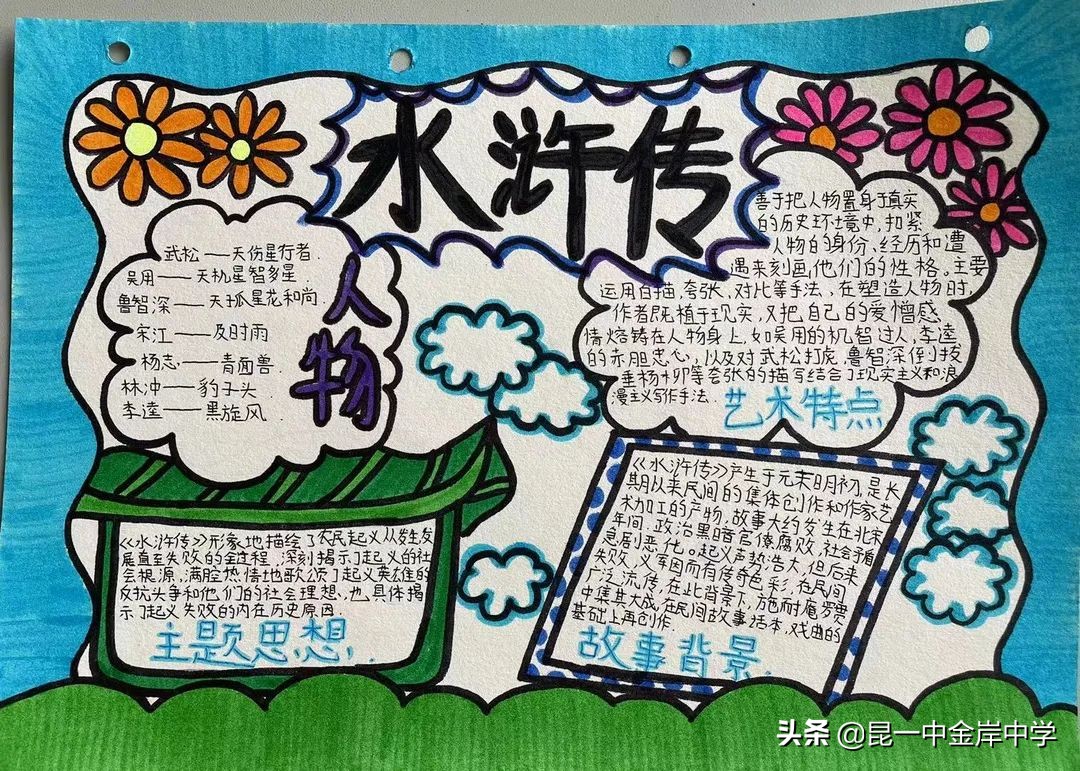 水浒传
武松——天伤星行者.
吴用——天机星智多星
鲁智深——天孤星花和尚.
宋江——及时雨
杨志——青面兽.
林冲——豹子头
李逵——黑旋风.
人物
善于把人物置身于真实
的历史环境中,扣紧
人物的身份、经历和遭
遇来刻画他们的性格。主要
运用白描,夸张,对比等手法、在塑造人物时,
作者既植于现实,又把自己的爱憎感
情熔铸在人物身上,如吴用的机智过人,李逵
的赤胆忠心,以及对武松打虎.鲁智深倒拔
垂杨柳等夸张的描写结合了现实主义和浪
漫主义写作手法.
艺术特点
《水浒传》形象地描绘了农民起义从发生发
展直至失败的全过程,深刻揭示了起义的社
会根源,满腔热情地歌颂了起义英雄的
反抗斗争和他们的社会理想,也具体揭
示了起义失败的内在历史原因.
主题思想..
《水浒传》产生于元末明初,是长
期以来民间的集体创作和作家艺
术加工的产物,故事大约发生在北宋
年间,政治黑暗官僚腐败,社会矛盾
急剧恶化。起义声势浩大,但后来
失败,义军因而有传奇色彩,在民间
广泛流传,在此背景下,施耐庵罗贯
中集其大成,在民间故事话本,戏曲的
基础上再创作.
故事背景.
头条 @昆一中金岸中学